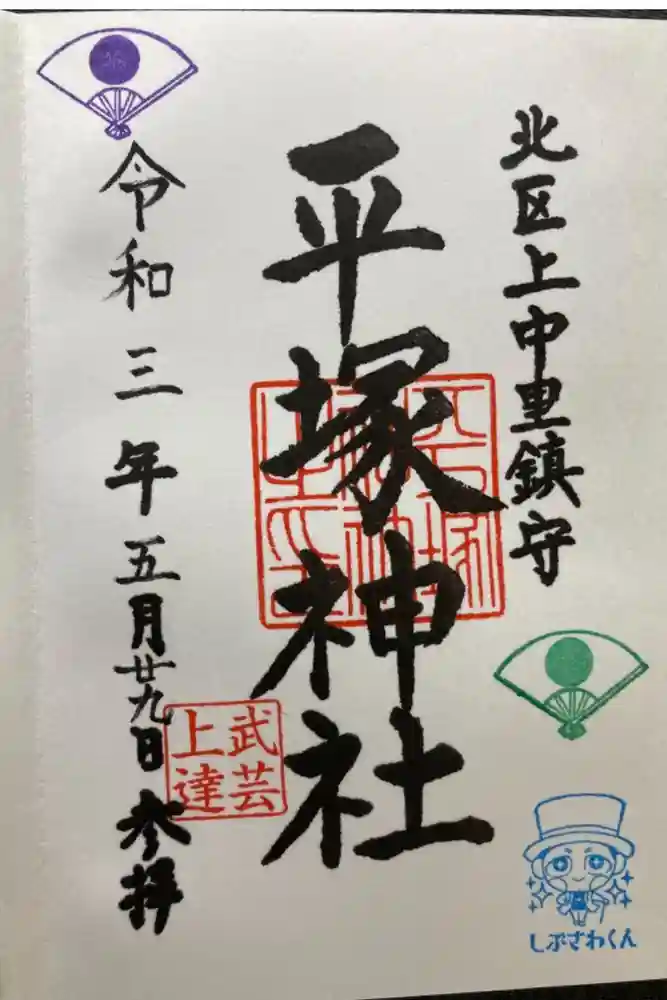 北区上中里鎮守
平塚神社
武芸
上達
令和三年五月廿九日参拝
しぶざわくん